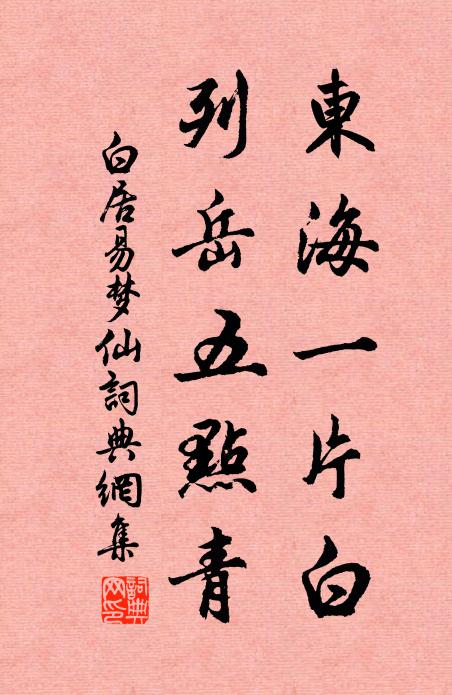 東海一片白
列岳五點青
白居易梦仙詞典網集
詞典網印